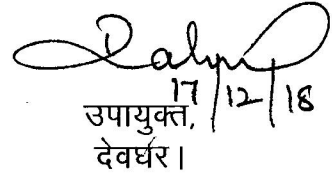 17/12/18
उपायुक्त,
देवघर।